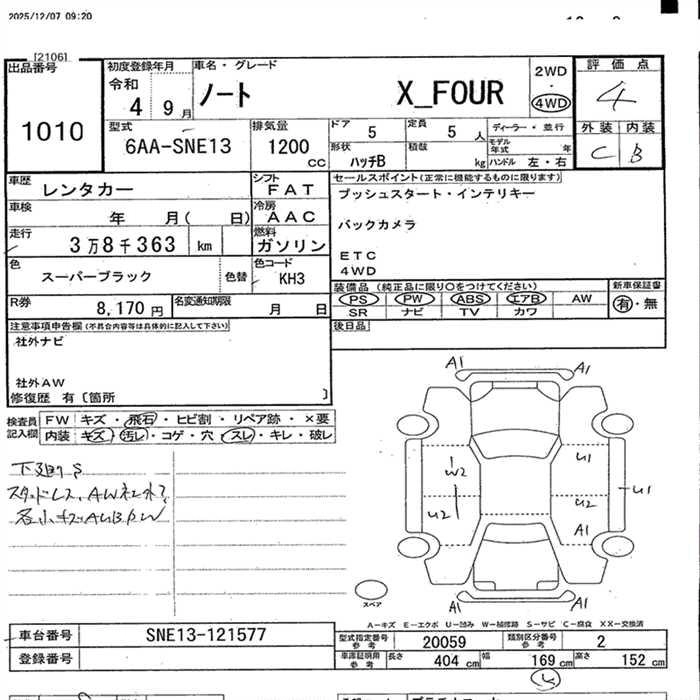 2025/12/07 09:20
[2106]
出品番号
1010
初度登録年月
令和
4 9月
車名・グレード
ノート X_FOUR
2WD
・
4WD
評価点
4
外装 内装
C B
型式
6AA-SNE13
排気量
1200
CC
ドア
5
定員
5人
形状
ハッチB
積載
kg
ディーラー・並行
モデル年式 年
ハンドル 左・右
車歴
レンタカー
シフト
FAT
車検
年 月( 日)
冷房
AAC
走行
3万8千363 km
燃料
ガソリン
色
スーパーブラック
色替
色コード
KH3
R券
8,170円
名変通知期限
月 日
セールスポイント(正常に機能するものに限ります)
プッシュスタート・インテリキー
バックカメラ
ETC
4WD
装備品 (純正品に限り○をつけてください)
新車保証書
PS PW ABS エアB AW
有・無
SR ナビ TV カワ
後日品
注意事項申告欄(不具合内容等は具体的に記入して下さい)
社外ナビ
社外AW
修復歴 有〔箇所 〕
検査員記入欄
FW キズ・飛石・ヒビ割・リペア跡・×要
内装 キズ・汚レ・コゲ・穴・スレ・キレ・破レ
下廻りS
スタッドレス、AW社外?
各小キズAUBPW
A1 A1
W2 U1
U2 U2 U1
A1
A1 A1
スペア
A-キズ E-エクボ U-凹み W-補修跡 S-サビ C-腐食 XX-交換済
車台番号
SNE13-121577
登録番号
型式指定番号 参考
20059
類別区分番号 参考
2
車庫証明用 参考
長さ 404 cm 幅 169 cm 高さ 152 cm